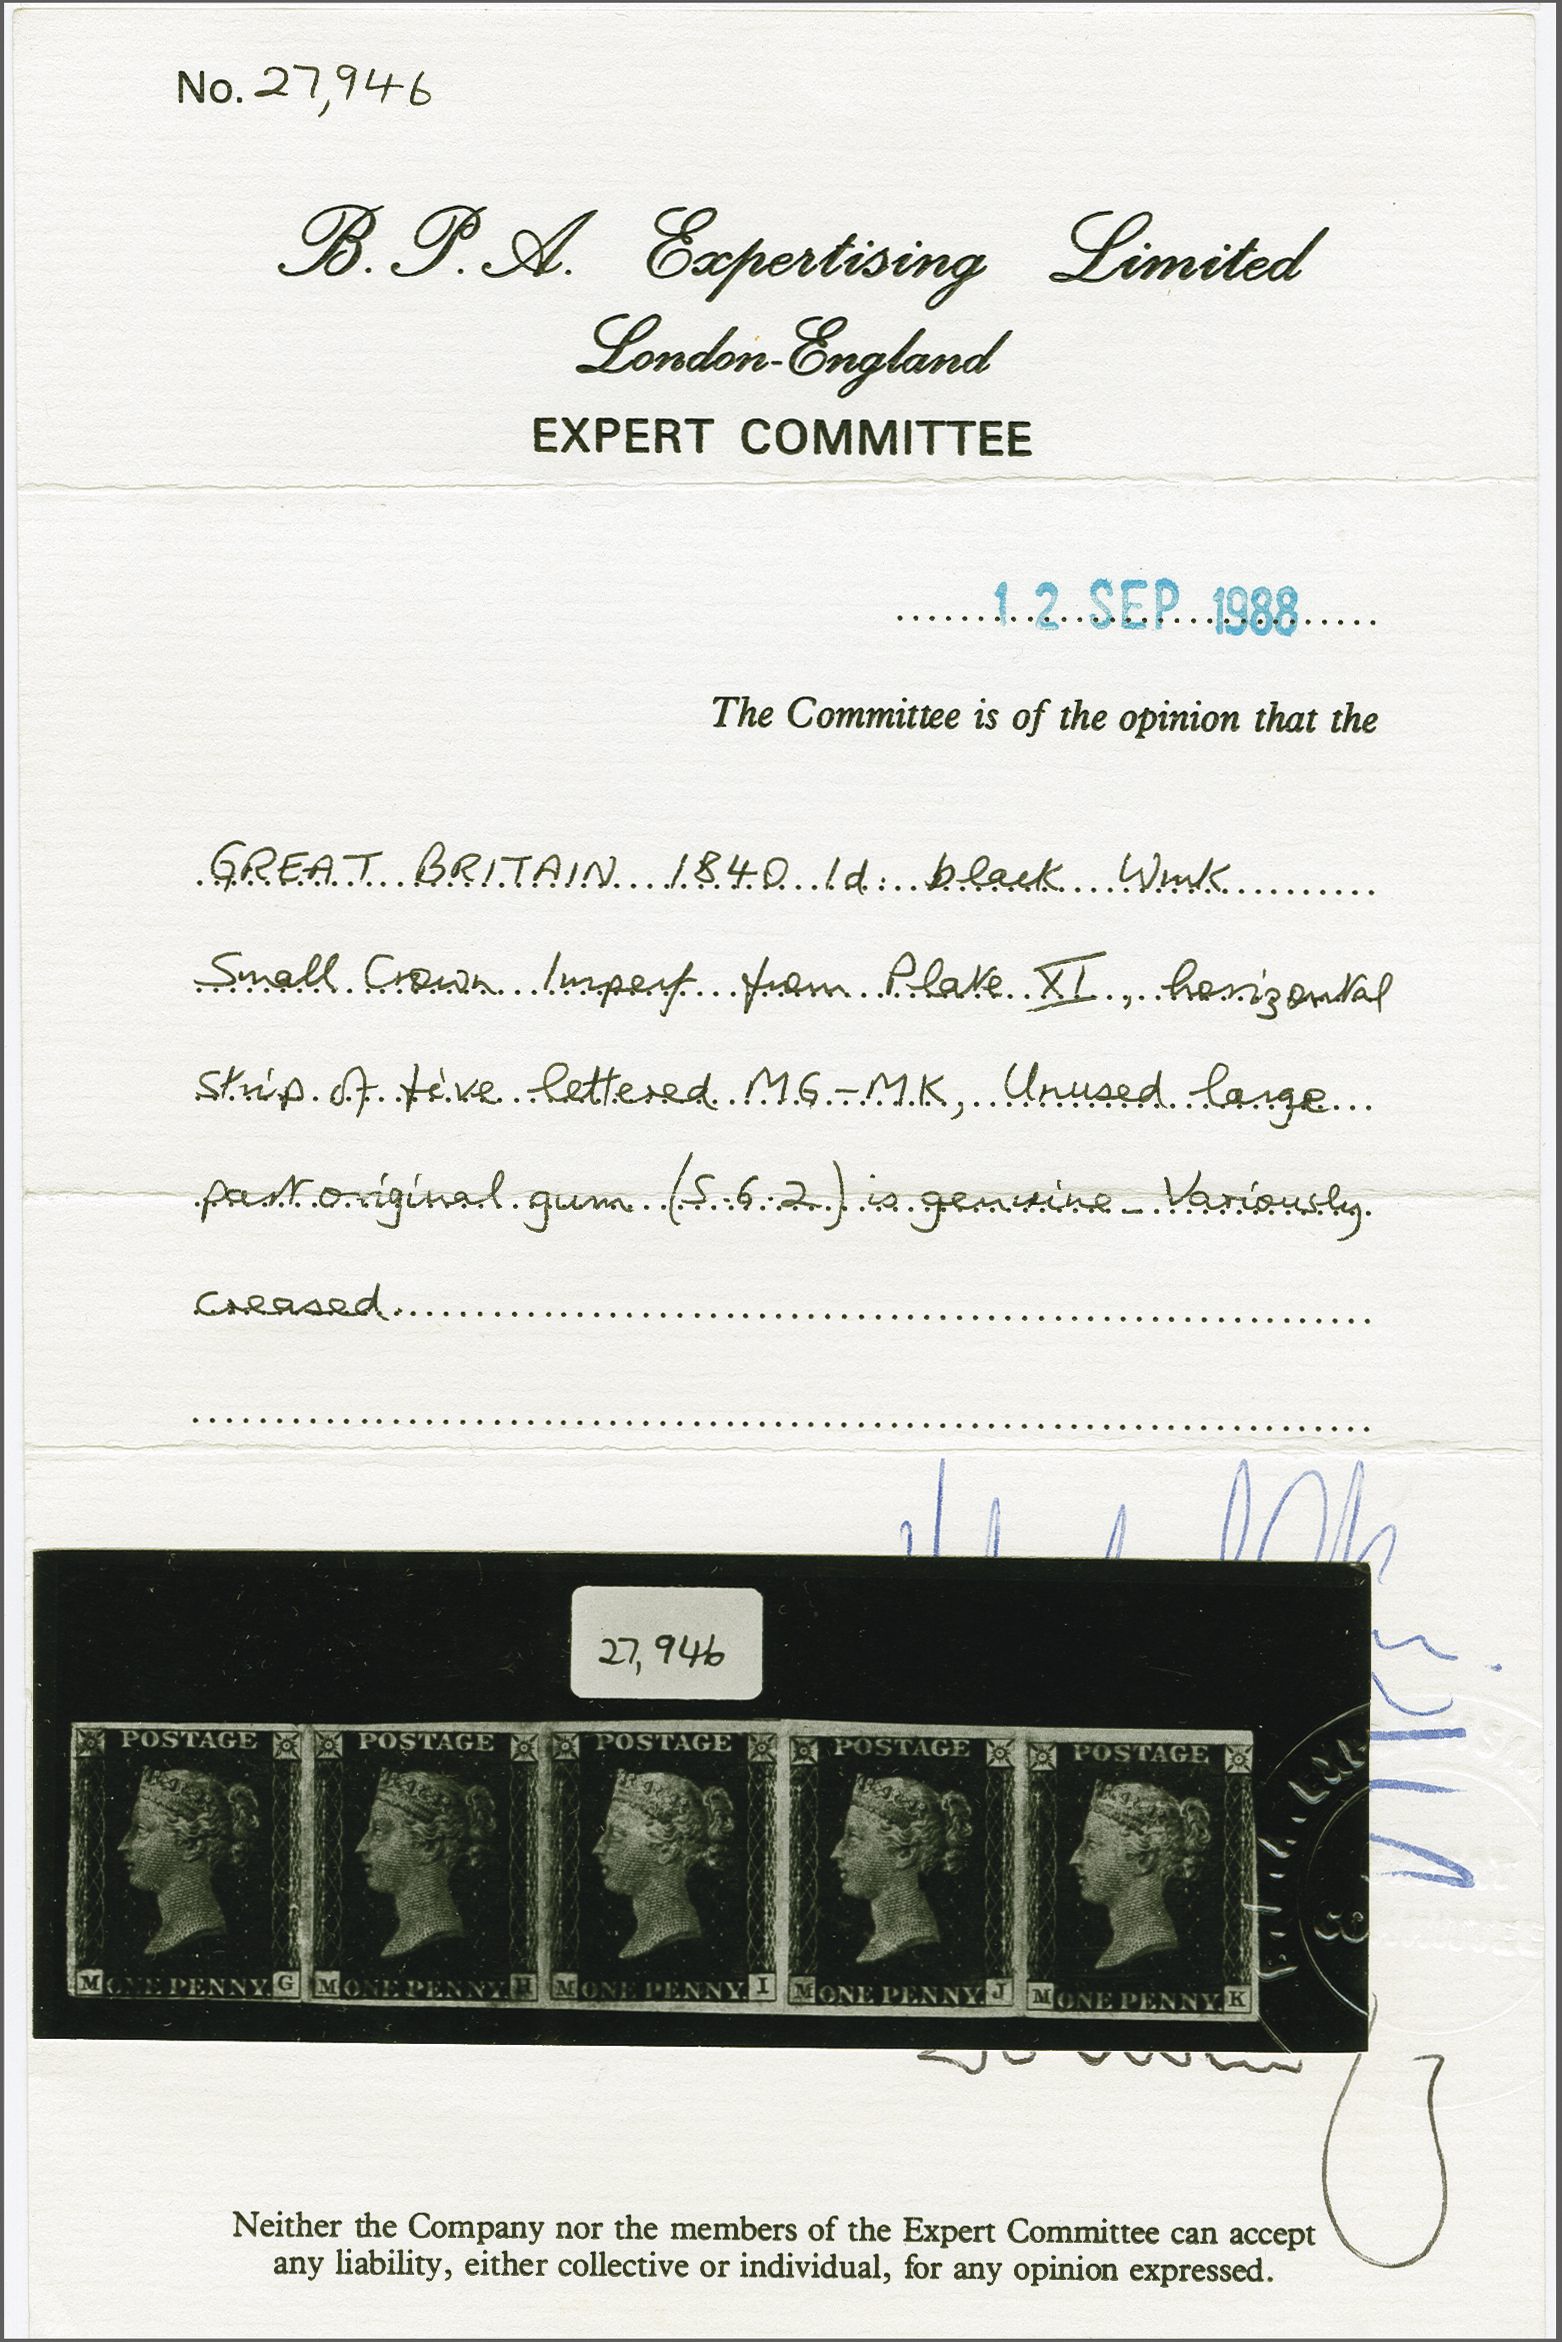 No. 27,946
B. P. A. Expertising Limited
London-England
EXPERT COMMITTEE
12 SEP 1988
The Committee is of the opinion that the
GREAT BRITAIN 1840 1d. black Wmk
Small Crown Imperf from Plate XI, horizontal
strip of five lettered MG-MK, Unused large
part original gum (S.G.2) is genuine - Variously
creased
27,946
POSTAGE POSTAGE POSTAGE POSTAGE POSTAGE
M ONE PENNY. G M ONE PENNY. H M ONE PENNY. I M ONE PENNY. J M ONE PENNY. K
Neither the Company nor the members of the Expert Committee can accept
any liability, either collective or individual, for any opinion expressed.